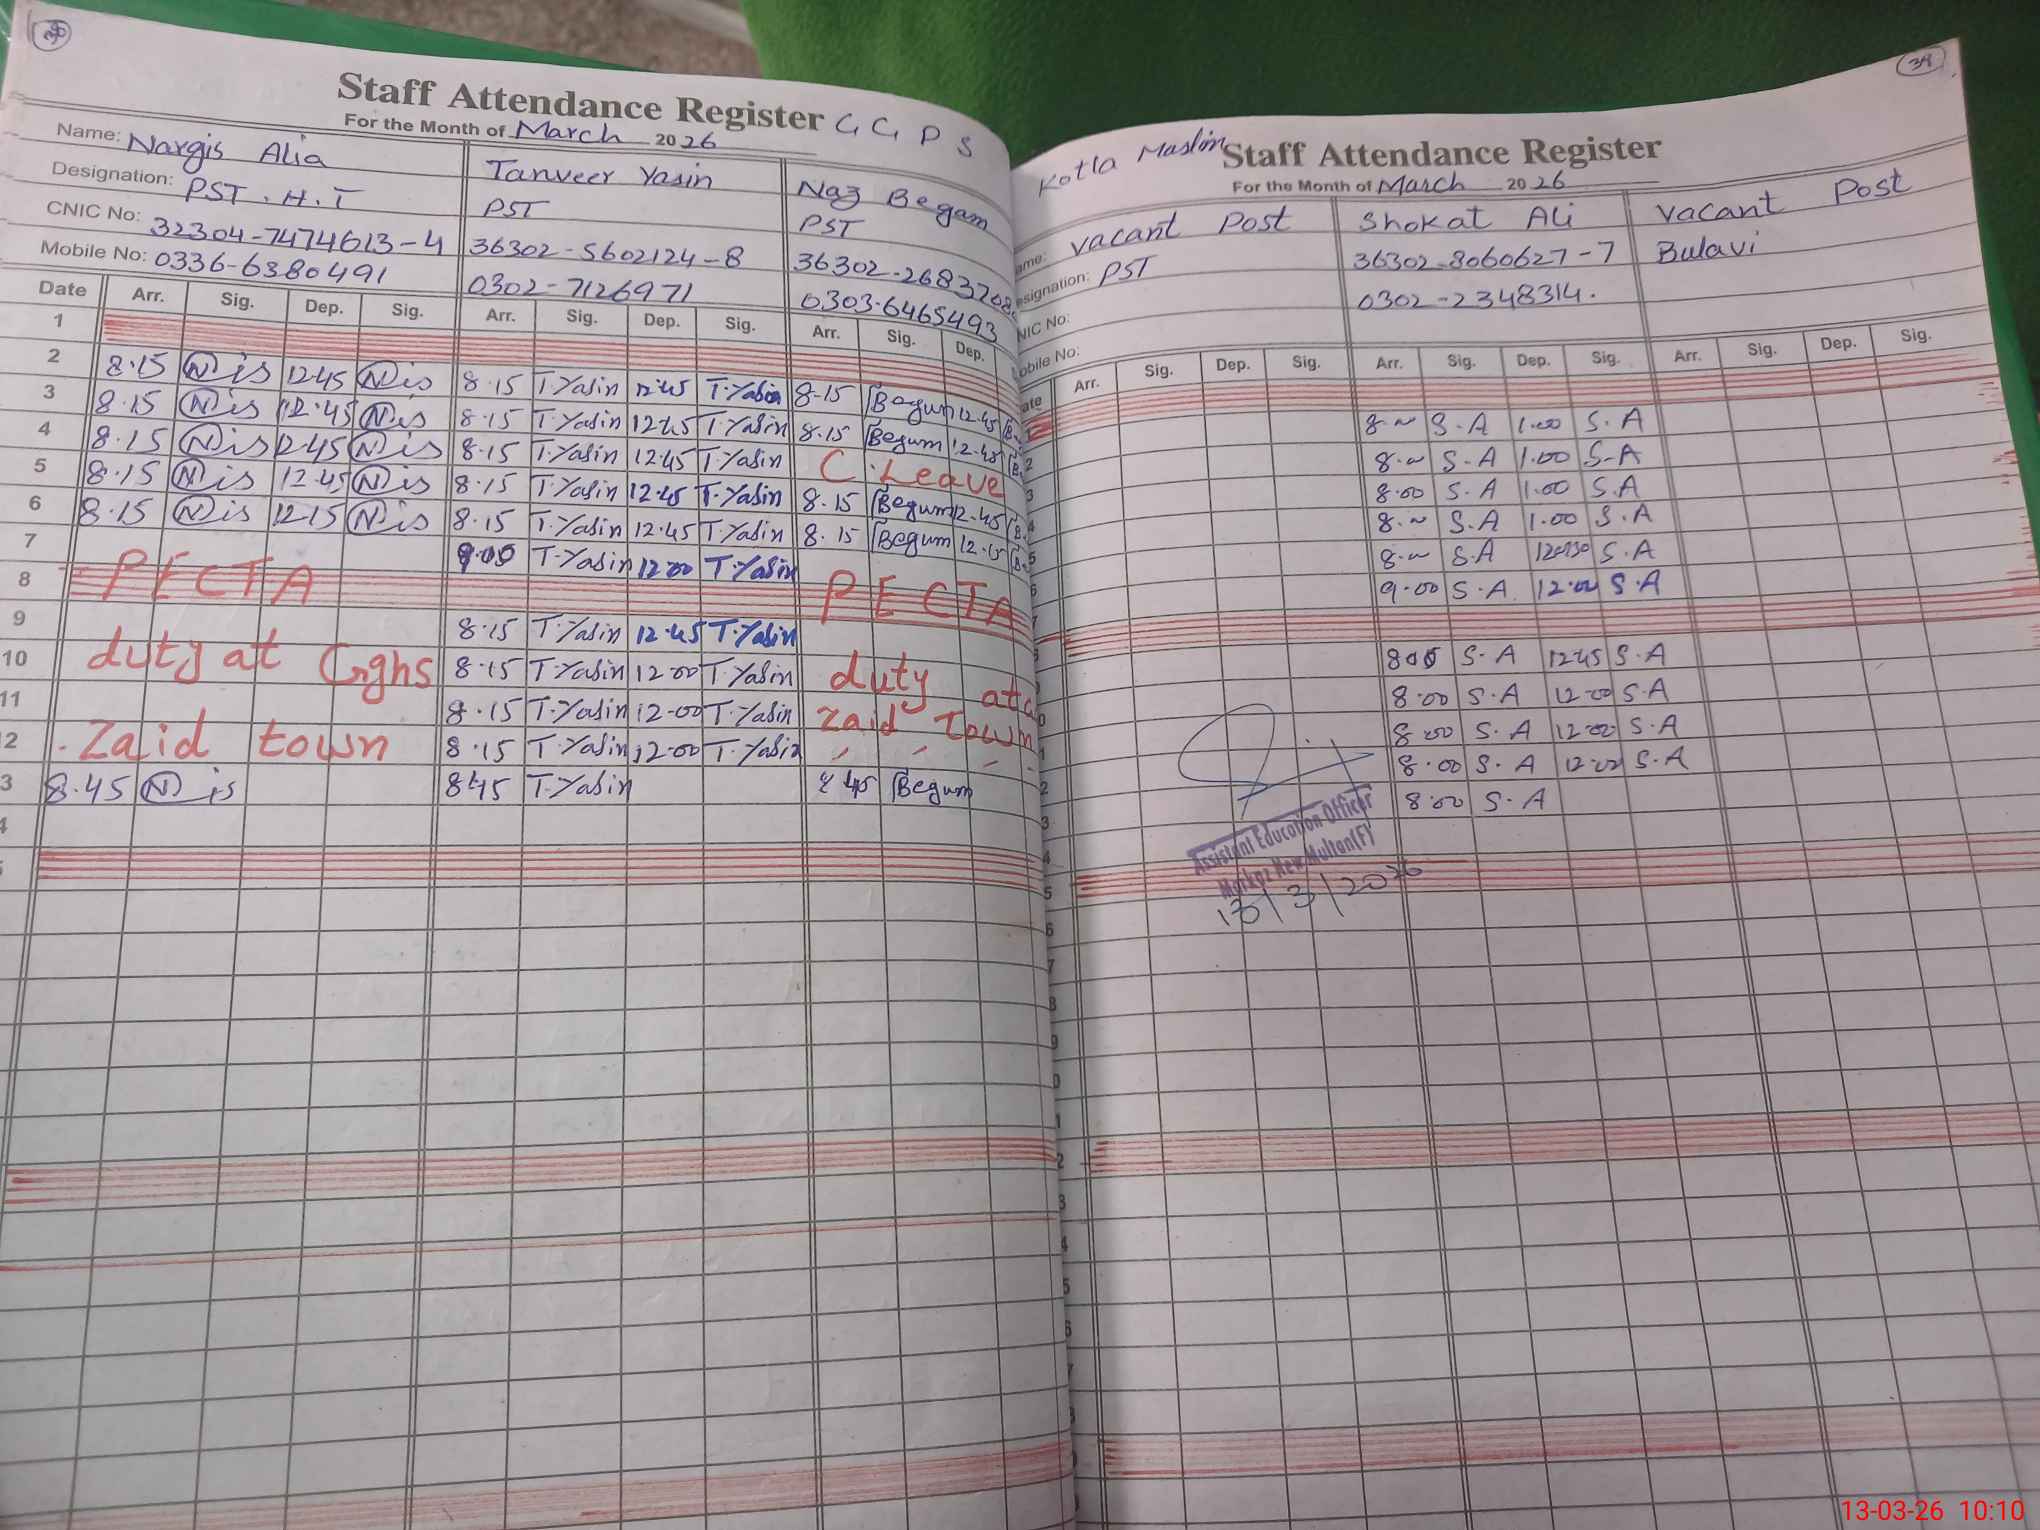 Staff Attendance Register G G P S
For the Month of March 2026
Name: Nargis Alia
Designation: PST . H . T
CNIC No: 32304-7474613-4
Mobile No: 0336-6380491
Tanveer Yasin
PST
36302-5602124-8
0302-7126971
Naz Begam
PST
36302-2683708
0303-6465493
Date Arr. Sig. Dep. Sig. Arr. Sig. Dep. Sig. Arr. Sig. Dep.
1
2 8.15 N is 12.45 N is 8.15 T.Yasin 12.45 T.Yasin 8-15 Begum 12.45 B.
3 8.15 N is 12.45 N is 8.15 T.Yasin 12.45 T.Yasin 8.15 Begum 12.45 B.
4 8.15 N is 12.45 N is 8.15 T.Yasin 12.45 T.Yasin C. Leave
5 8.15 N is 12.45 N is 8.15 T.Yasin 12.45 T.Yasin 8.15 Begum 12.45 B.
6 8.15 N is 12.15 N is 8.15 T.Yasin 12.45 T.Yasin 8.15 Begum 12.15 B.
7 9.00 T.Yasin 12.00 T.Yasin
8 PECTA PECTA
9 8.15 T.Yasin 12.45 T.Yasin
10 duty at Gghs 8.15 T.Yasin 12.00 T.Yasin duty at
11 8.15 T.Yasin 12.00 T.Yasin Zaid Town
2 Zaid town 8.15 T.Yasin 12.00 T.Yasin
3 8.45 N is 8.45 T.Yasin 8.45 Begum
4
5
38
Kotla Staff Attendance Register
For the Month of March 2026
ame: Vacant Post
esignation: PST
NIC No:
obile No:
Shokat Ali
36302-8060627-7
0302-2348314.
Vacant Post
Bulavi
ate Arr. Sig. Dep. Sig. Arr. Sig. Dep. Sig. Arr. Sig. Dep. Sig.
8.00 S.A 1.00 S.A
2 8.00 S.A 1.00 S.A
3 8.00 S.A 1.00 S.A
4 8.00 S.A 1.00 S.A
5 8.00 S.A S.A
6 9.00 S.A. 12.00 S.A
7
8.00 S.A 12.45 S.A
8.00 S.A 12.00 S.A
0 8.00 S.A 12.00 S.A
1 8.00 S.A 12.00 S.A
2 8.00 S.A
3
4
5
6
7
8
9
0
1
2
3
4
5
6
7
8
Assistant Education Officer
Markaz New Multan(F)
13/3/2026
13-03-26 10:10